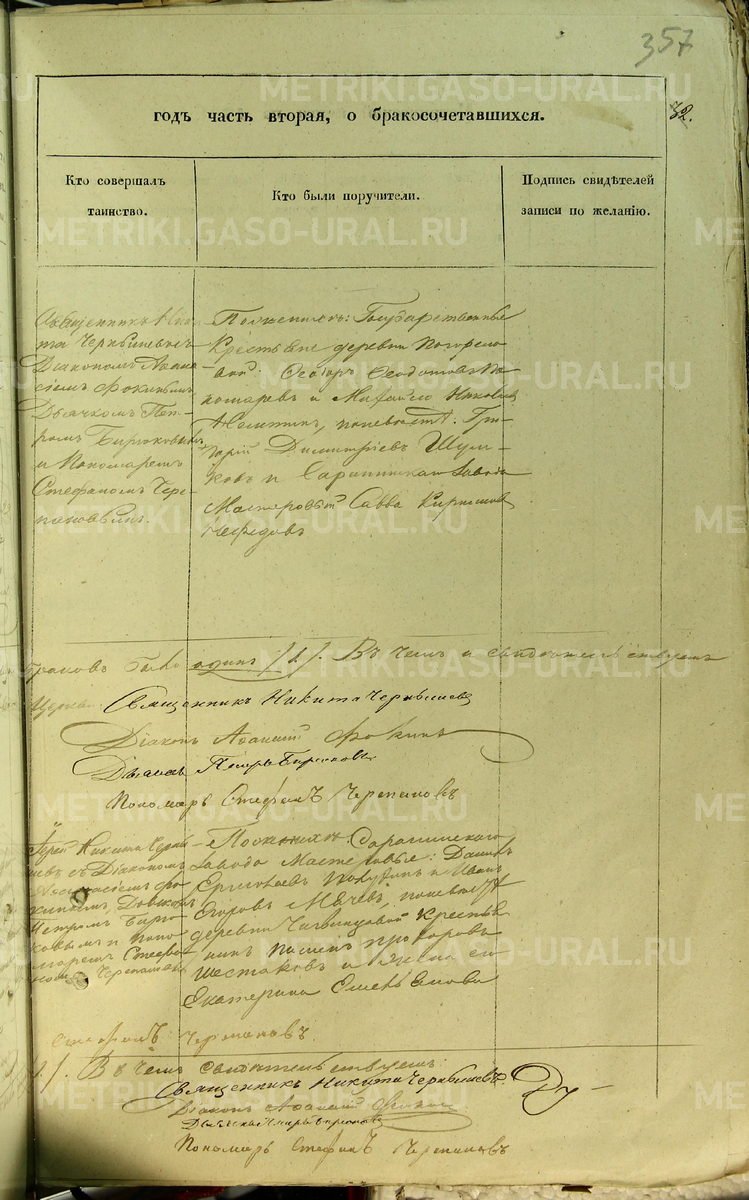 357
32.
годъ часть вторая, о бракосочетавшихся.
Кто совершалъ
таинство.
Кто были поручители.
Подпись свидѣтелей
записи по желанію.
Священникъ Ники
та Чернышевъ съ
Діакономъ Аѳана
сіемъ Фокинымъ
Дьячкомъ Пет
ромъ Бирюковымъ
и Пономаремъ
Стефаномъ Чере
пановымъ.
По женихѣ: Государственные
Крестьяне деревни
Ѳеодоръ Ѳеодотовъ По
номаревъ и Михайло
по невѣстѣ: Гри
горій Димитріевъ
и Саранинскаго Завода
Мастеровой Савва
Нефедовъ
Браковъ было одинъ /1/. Въ чемъ и свидѣтельствуемъ
Священникъ Никита Чернышевъ
Діаконъ Аѳанасій Фокинъ
Дьячекъ Петръ Бирюковъ
Пономарь Стефанъ Черепановъ
Іерей Никита Черны
шевъ съ Діакономъ
Аѳанасіемъ Фо
кинымъ, Дьячкомъ
Петромъ Бирю
ковымъ и Поно
маремъ Стефа
номъ Черепановымъ
По женихѣ: Саранинскаго
Завода Мастеровые: Данилъ
и Иванъ
Егоровъ по невѣстѣ
деревни Крестья
нинъ Прохоровъ
Шестаковъ и жена его
Екатерина
Стефанъ Черепановъ.
Въ чемъ свидѣтельствуемъ
Священникъ Никита Чернышевъ
Діаконъ Аѳанасій Фокинъ
Дьячекъ Петръ Бирюковъ
Пономарь Стефанъ Черепановъ
METRIKI.GASO-URAL.RU